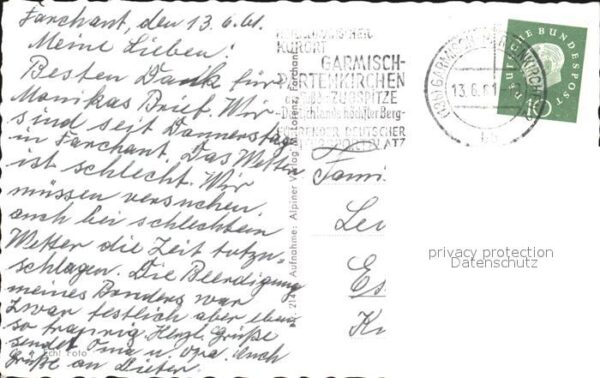 Farchant, den 13.6.61.
Meine Lieben!
Besten Dank für
Monikas Brief. Wir
sind seit Donnerstag
in Farchant. Das Wetter
ist schlecht. Wir
müssen versuchen,
auch bei schlechtem
Wetter die Zeit totzu-
schlagen. Die Beerdigung
meines Bruders war
zwar festlich aber eben
so traurig Herzl. Grüße
sendet Oma u. Opa. Auch
Grüße an Dieter.
Echt Foto
Aufnahme: Alpiner Verlag Lorenz, Farchant
KURORT
GARMISCH-
PARTENKIRCHEN
ZUGSPITZE
Deutschlands höchster Berg
FÜHRENDER DEUTSCHER
WINTERSPORTPLATZ
GARMISCH-PARTENKIRCHEN
13.6.61
DEUTSCHE BUNDESPOST
10
Fami
Le
Es
K
privacy protection
Datenschutz